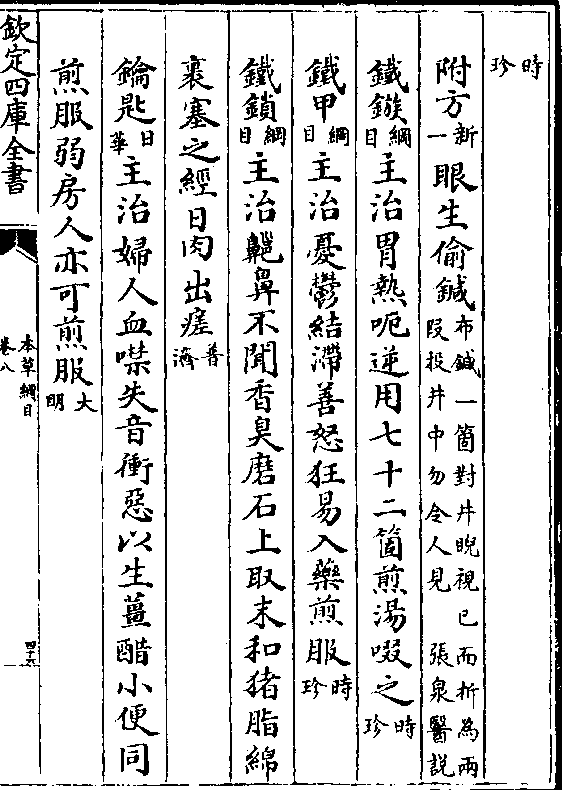 時珍
附方新一眼生偷鍼布鍼一箇對井睨視已而折為兩段投井中勿令人見 張杲醫說
鐵鏃綱目主治胃熱呃逆用七十二箇煎湯啜之時珍
鐵甲綱目主治憂鬱結滯善怒狂易入藥煎服時珍
鐵鎖綱目主治齆鼻不聞香臭磨石上取末和猪脂綿
裹塞之經日肉出瘥普濟
鑰匙日華主治婦人血噤失音衝惡以生薑醋小便同
煎服弱房人亦可煎服大明
欽定四庫全書
本草綱目
卷八